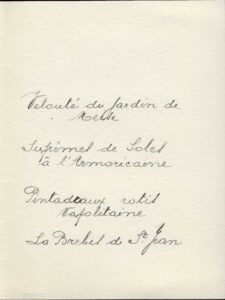 Velouté du Jardin de
Suprêmes de Soles
à l'Armoricaine
Pintadeaux rotis
Napolitaine
La Brebis de St Jean